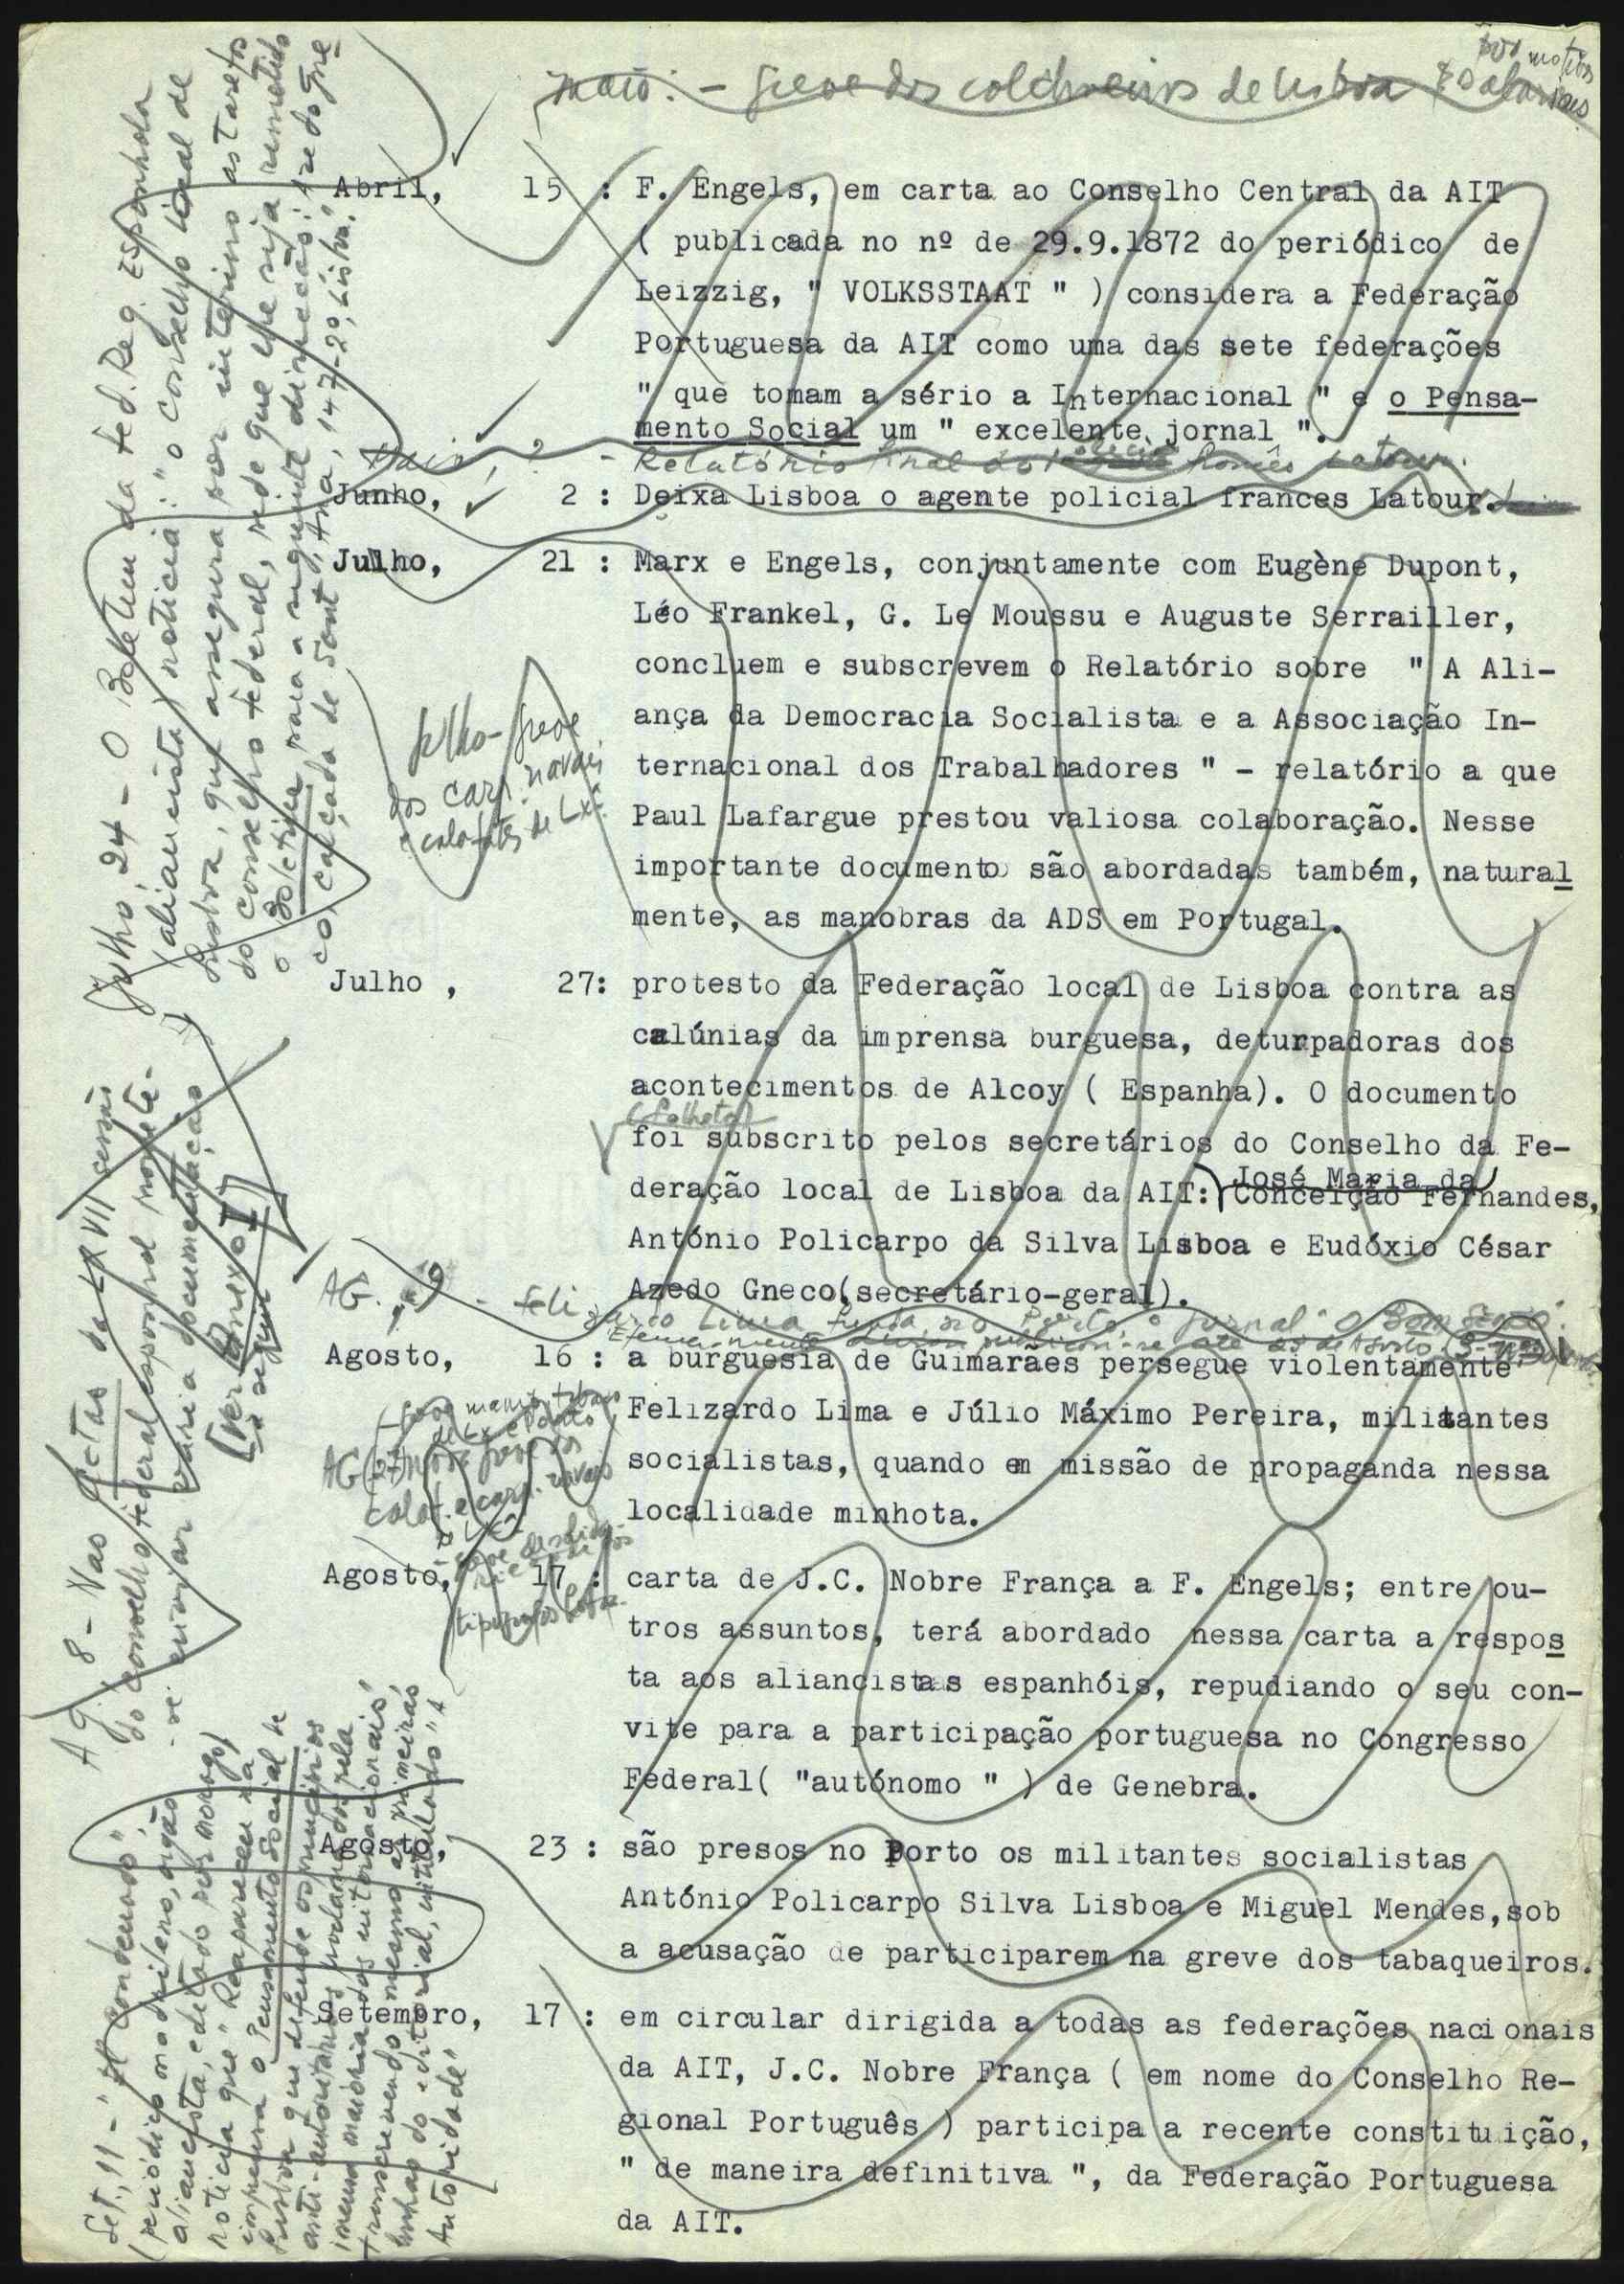 maio: - greve dos colchoeiros de Lisboa por motivos
salariais
Abril, 15 : F. Engels, em carta ao Conselho Central da AIT
( publicada no nº de 29.9.1872 do periódico de
Leizzig, " VOLKSSTAAT " ) considera a Federação
Portuguesa da AIT como uma das sete federações
" que tomam a sério a Internacional " e o Pensa-
mento Social um " excelente jornal ".
Maio, ? - Relatório final do francês Latour.
Junho, 2 : Deixa Lisboa o agente policial frances Latour.
Julho, 21 : Marx e Engels, conjuntamente com Eugène Dupont,
Léo Frankel, G. Le Moussu e Auguste Serrailler,
concluem e subscrevem o Relatório sobre " A Ali-
ança da Democracia Socialista e a Associação In-
ternacional dos Trabalhadores " - relatório a que
Paul Lafargue prestou valiosa colaboração. Nesse
importante documento são abordadas também, natural
mente, as manobras da ADS em Portugal.
Julho - greve
dos carp. navais
e calafates de Lxª.
Julho , 27: protesto da Federação local de Lisboa contra as
calúnias da imprensa burguesa, deturpadoras dos
acontecimentos de Alcoy ( Espanha). O documento
(folheto)
foi subscrito pelos secretários do Conselho da Fe-
deração local de Lisboa da AIT: José Maria da
Conceição Fernandes,
António Policarpo da Silva Lisboa e Eudóxio César
Azedo Gneco(secretário-geral).
AG. , ? - Felizardo Lima funda no Porto o jornal "O Bom Senso".
Agosto, 16 : a burguesia de Guimarães persegue violentamente
Felizardo Lima e Júlio Máximo Pereira, militantes
socialistas, quando em missão de propaganda nessa
localidade minhota.
- greve manip. tabaco
de Lx e Porto
AG(27) nova greve dos
calaf. e carp. navais
Agosto, 17 : carta de J.C. Nobre França a F. Engels; entre ou-
tros assuntos, terá abordado nessa carta a respos
ta aos aliancistas espanhóis, repudiando o seu con-
vite para a participação portuguesa no Congresso
Federal( "autónomo " ) de Genebra.
Agosto, 23 : são presos no Porto os militantes socialistas
António Policarpo Silva Lisboa e Miguel Mendes,sob
a acusação de participarem na greve dos tabaqueiros.
Setembro, 17 : em circular dirigida a todas as federações nacionais
da AIT, J.C. Nobre França ( em nome do Conselho Re-
gional Português ) participa a recente constituição,
" de maneira definitiva ", da Federação Portuguesa
da AIT.
Julho, 24 - O Boletim da Fed. Reg. Espanhola
(aliancista) noticia: "o conselho local de
Lisboa, que assegura por interino as tarefas
do conselho federal, pede que lhe seja remetido
o Boletim para a seguinte direcção: Azedo Gne-
co, calçada de Santª. Ana, 147-2º, Lisboa."
Ag. 8 - Nas Actas da LXVII sessão
do conselho federal espanhol promete-
se enviar vária documentação
[Ver Anexo I]
a seguir
Set., 11 - "El Condenado"
(periódico madrileno, orgão
aliancista, editado por Morago)
noticia que "Reapareceu na
imprensa o Pensamento Social de
Lisboa que defende os princípios
anti-autoritários proclamados pela
imensa maioria dos internacionais",
transcrevendo mesmo as primeiras
linhas do editorial, intitulado "A
Autoridade"